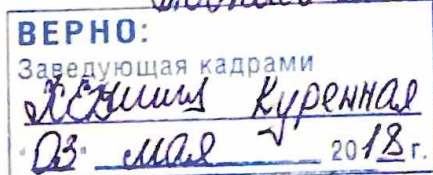 ВЕРНО:
Заведующая кадрами
Куренная
"03" мая 2018 г.